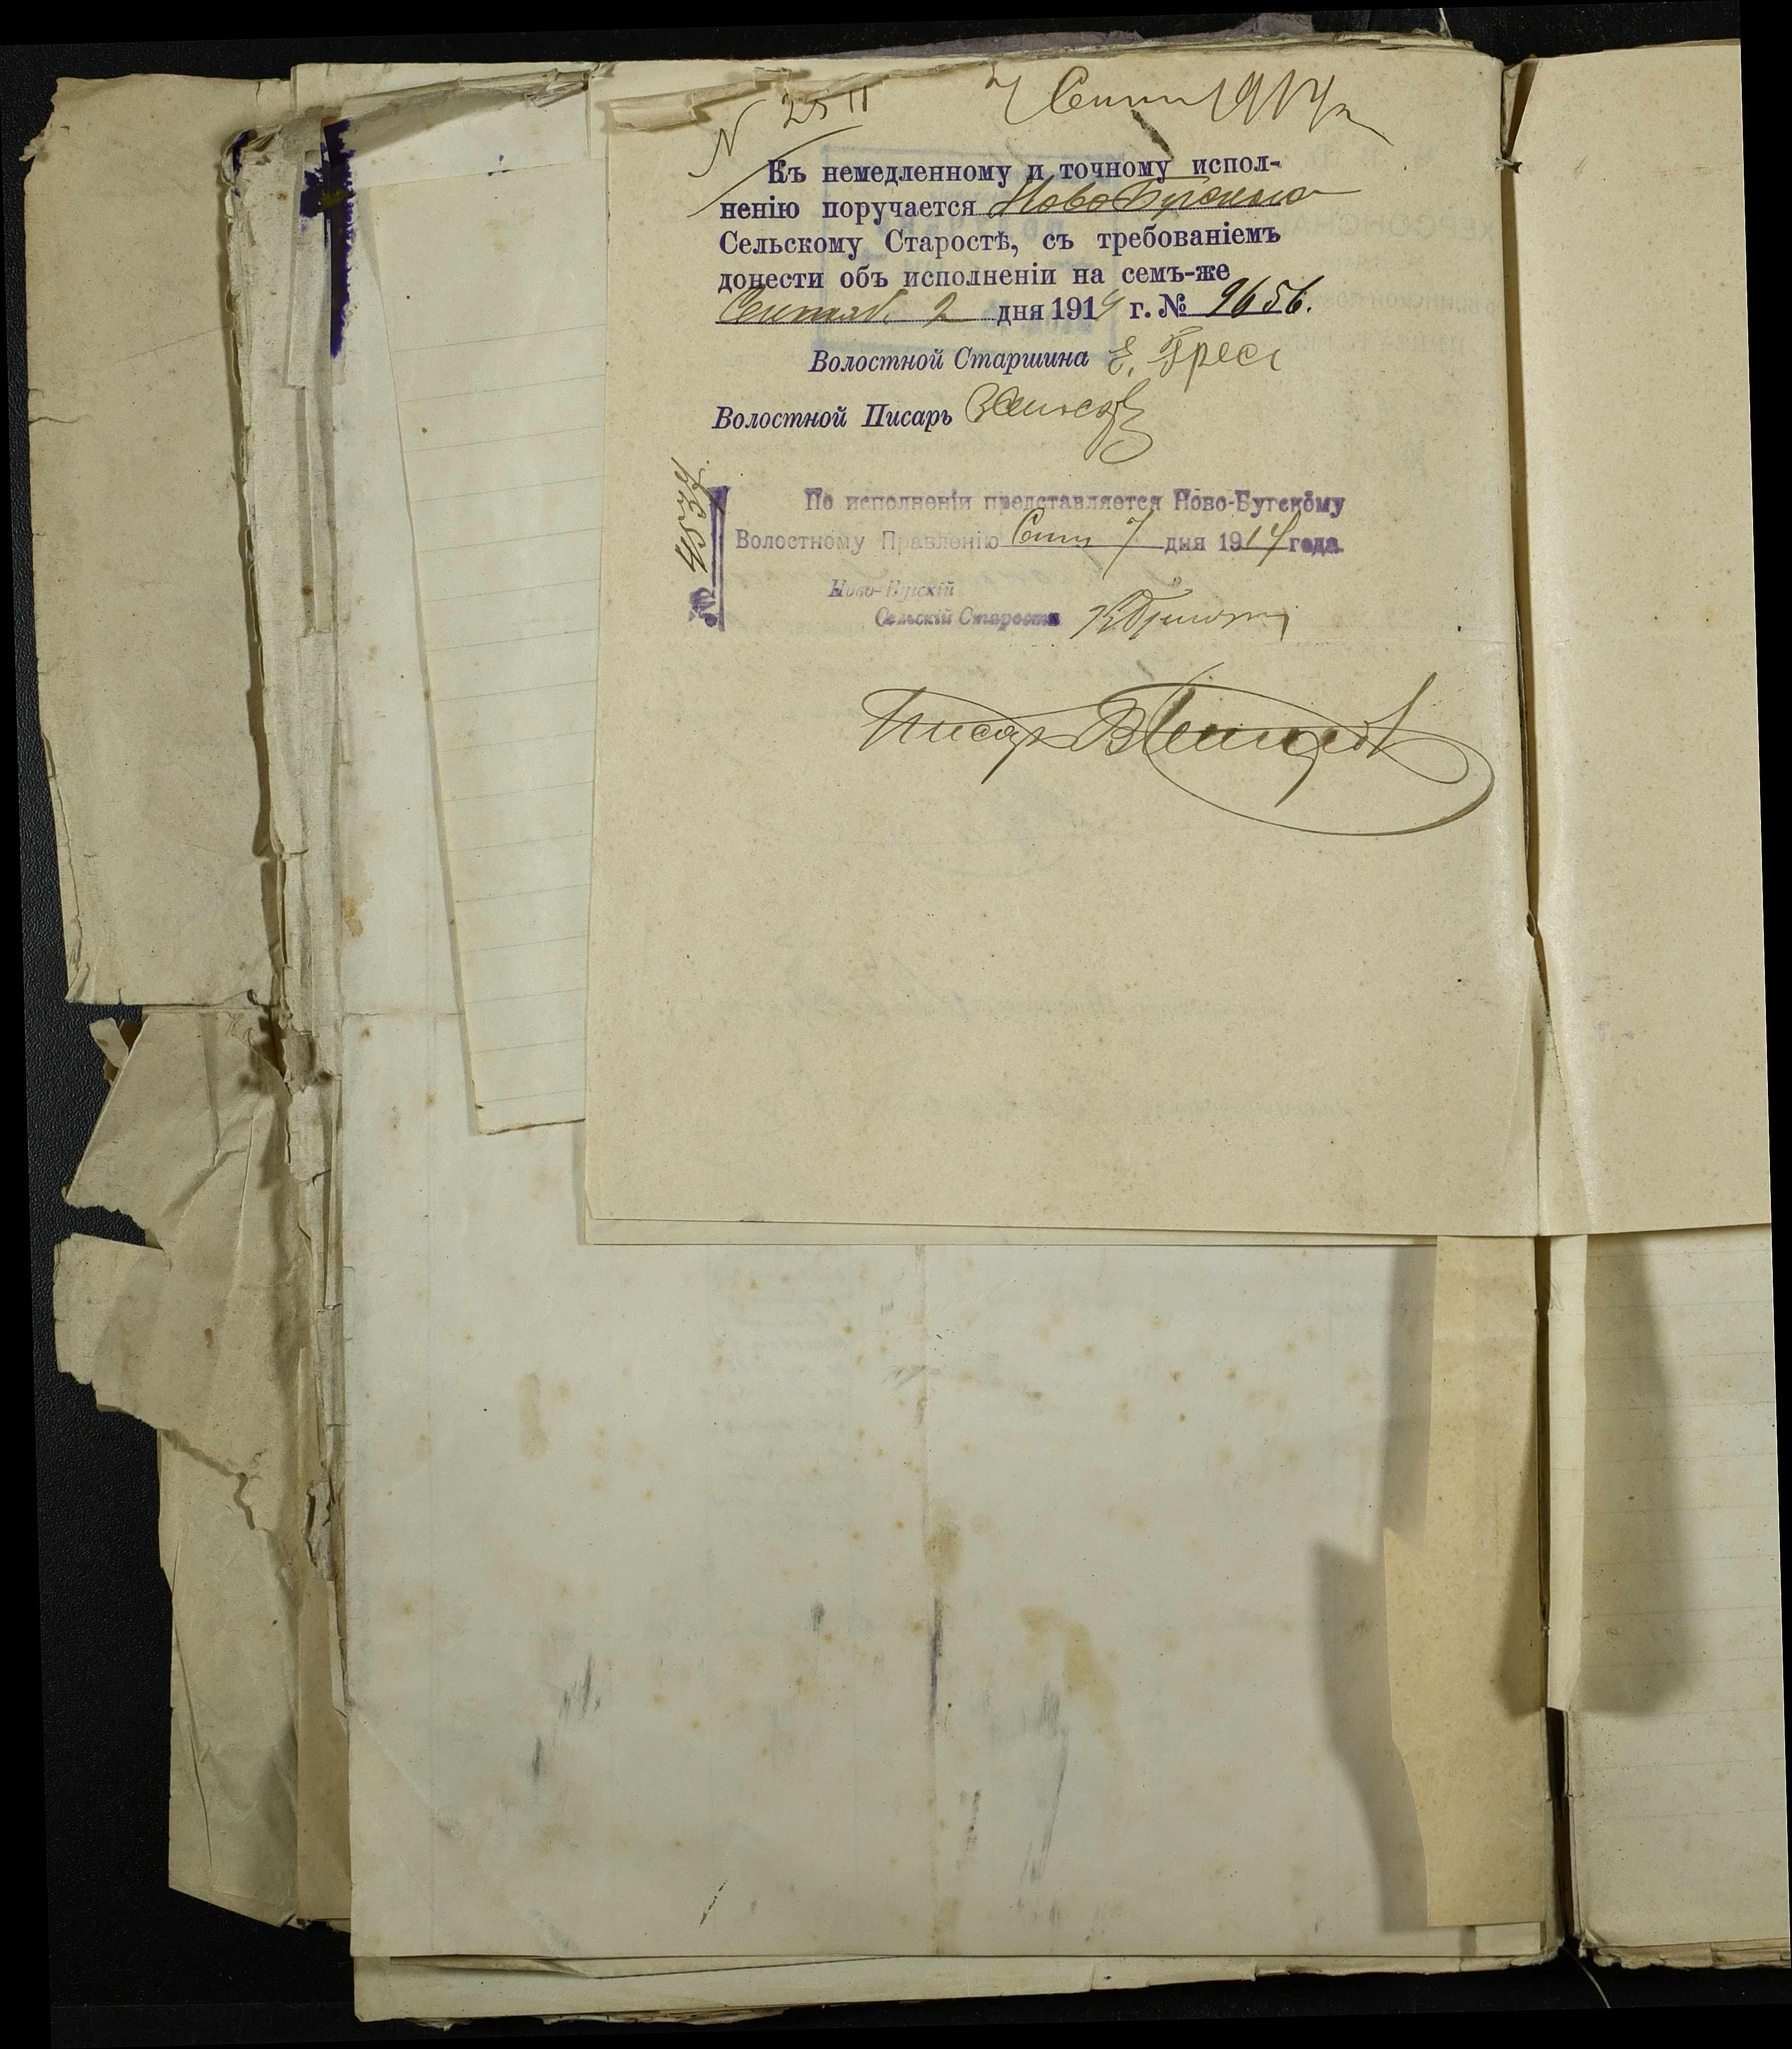 N 2511 7 Сент 1914 г
Къ немедленному и точному испол-
ненію поручается Ново Бугскому
Сельскому Старостѣ, съ требованіемъ
донести объ исполненіи на семъ-же
Сентяб. 2 дня 1914 г. № 9656.
Волостной Старшина Е. Грес
Волостной Писарь
№ 4537
По исполненіи представляется Ново-Бугскому
Волостному Правленію Сент 7 дня 1914 года.
Ново-Бугскій
Сельскій Староста
Писарь